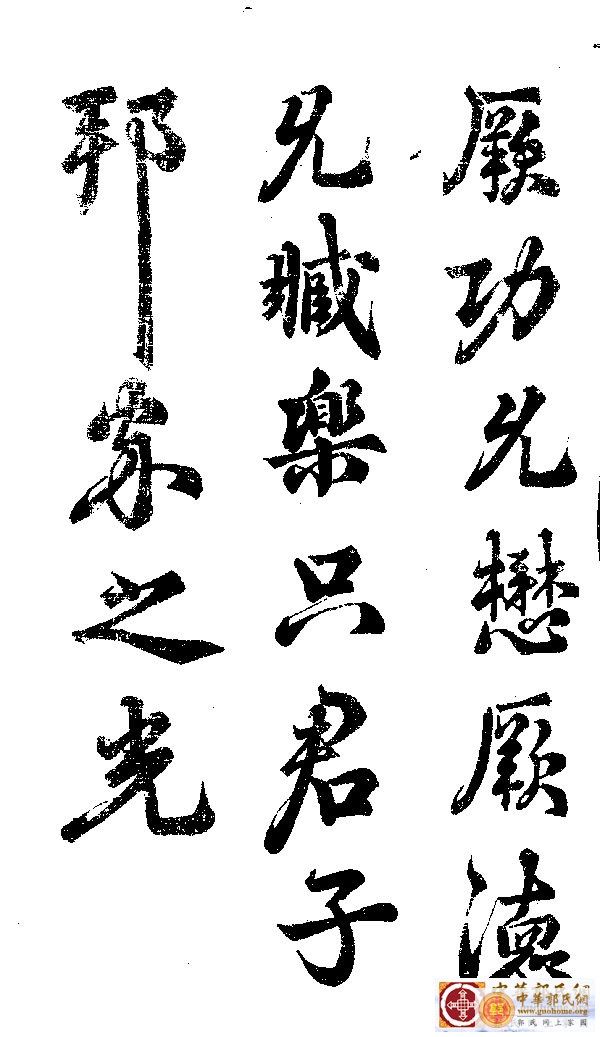 厥功允懋厥德
允臧樂只君子
邦家之光
中華郭氏網
www.guohome.org
郭氏网上家园